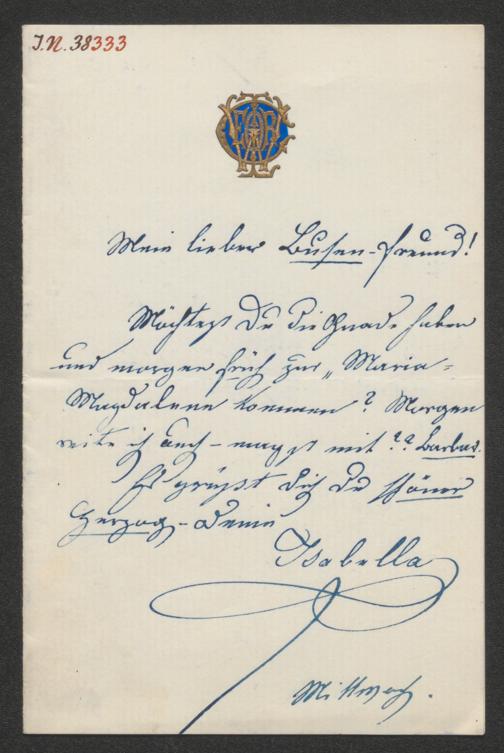 I.N. 38333
Mein lieber Busen-Freund!
Möchtest Du die Gnade haben
und morgen früh zur „Maria-
Magdalena kommen? Morgen
reite ich auch – magst mit??
Es grüßt Dich Du schöner
Herzog – Deine
Isabella
Mittwoch.